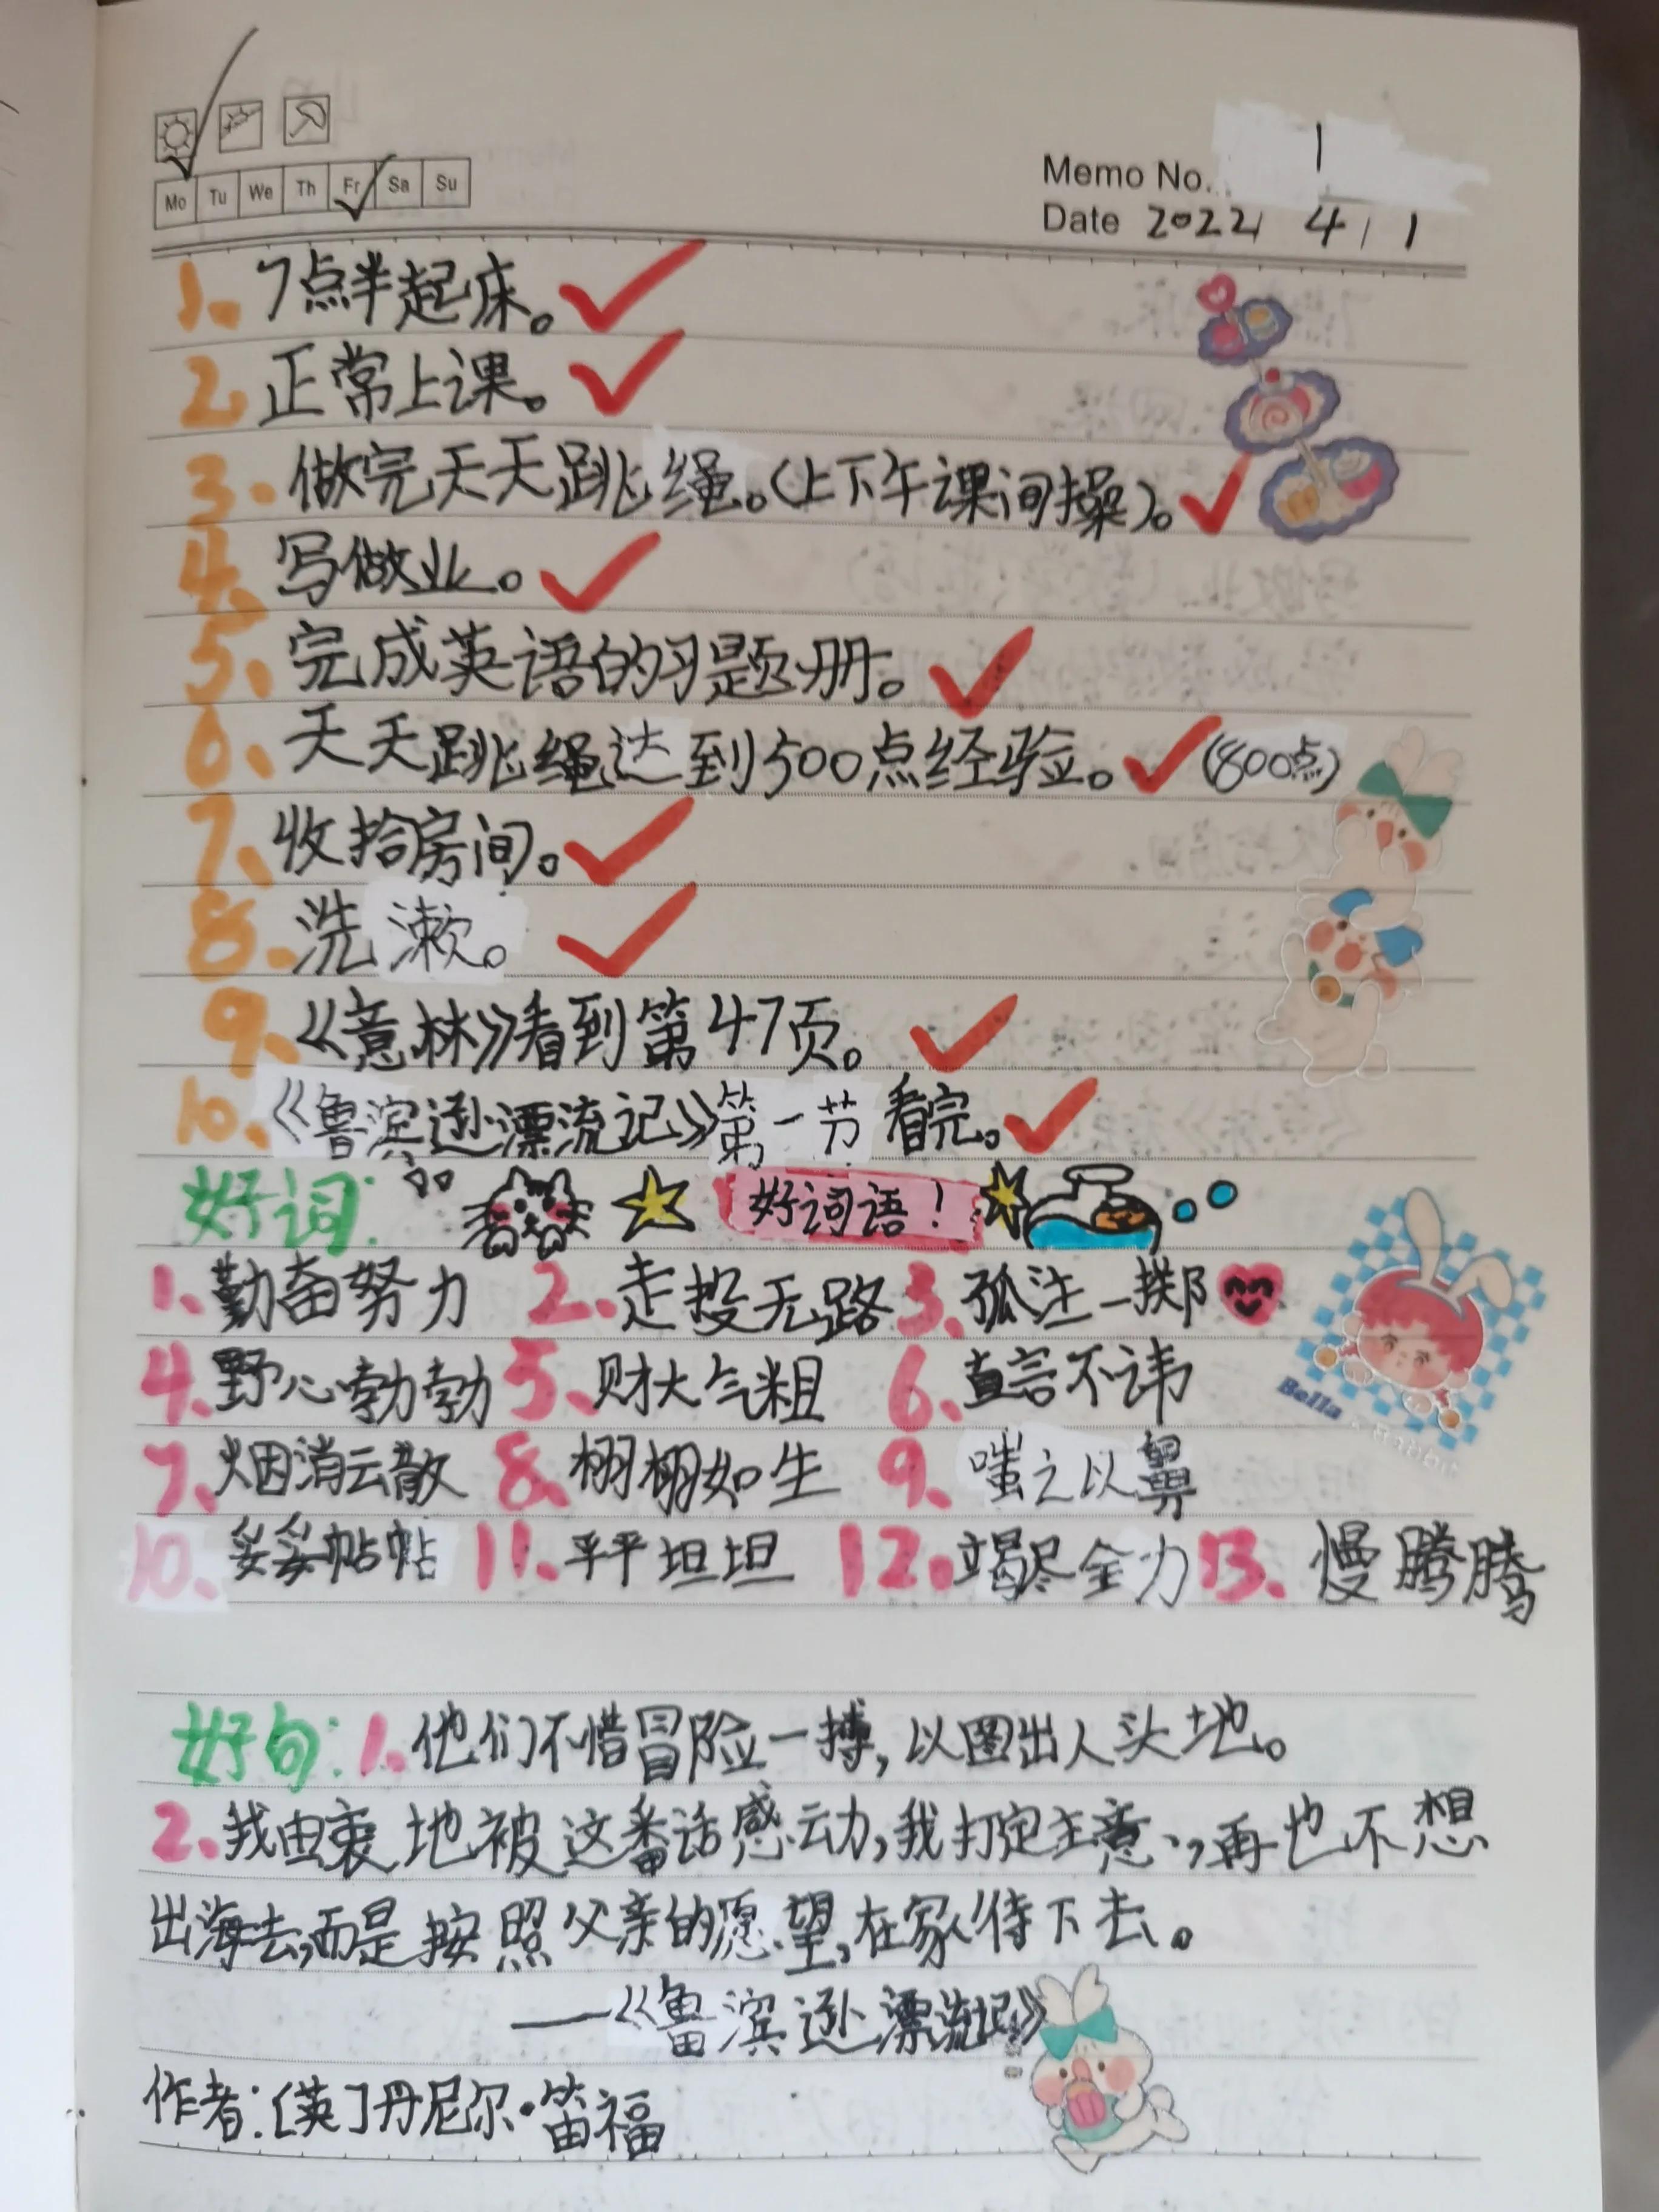 Memo No. 1
Mo Tu We Th Fr Sa Su
Date 2022 / 4 / 1
1. 7点半起床。
2. 正常上课。
3. 做完天天跳绳。(上下午课间操)。
4. 写做业。
5. 完成英语的习题册。
6. 天天跳绳达到500点经验。(800点)
7. 收拾房间。
8. 洗漱。
9. 《意林》看到第47页。
10. 《鲁滨逊漂流记》第一节看完。
好词: 好词语!
1. 勤奋努力 2. 走投无路 3. 孤注一掷
4. 野心勃勃 5. 财大气粗 6. 直言不讳
7. 烟消云散 8. 栩栩如生 9. 嗤之以鼻
10. 妥妥帖帖 11. 平平坦坦 12. 竭尽全力 13. 慢腾腾
Bella Rabbit
好句: 1. 他们不惜冒险一搏,以图出人头地。
2. 我由衷地被这番话感动,我打定主意,再也不想
出海去,而是按照父亲的愿望,在家待下去。
——《鲁滨逊漂流记》
作者:[英]丹尼尔·笛福